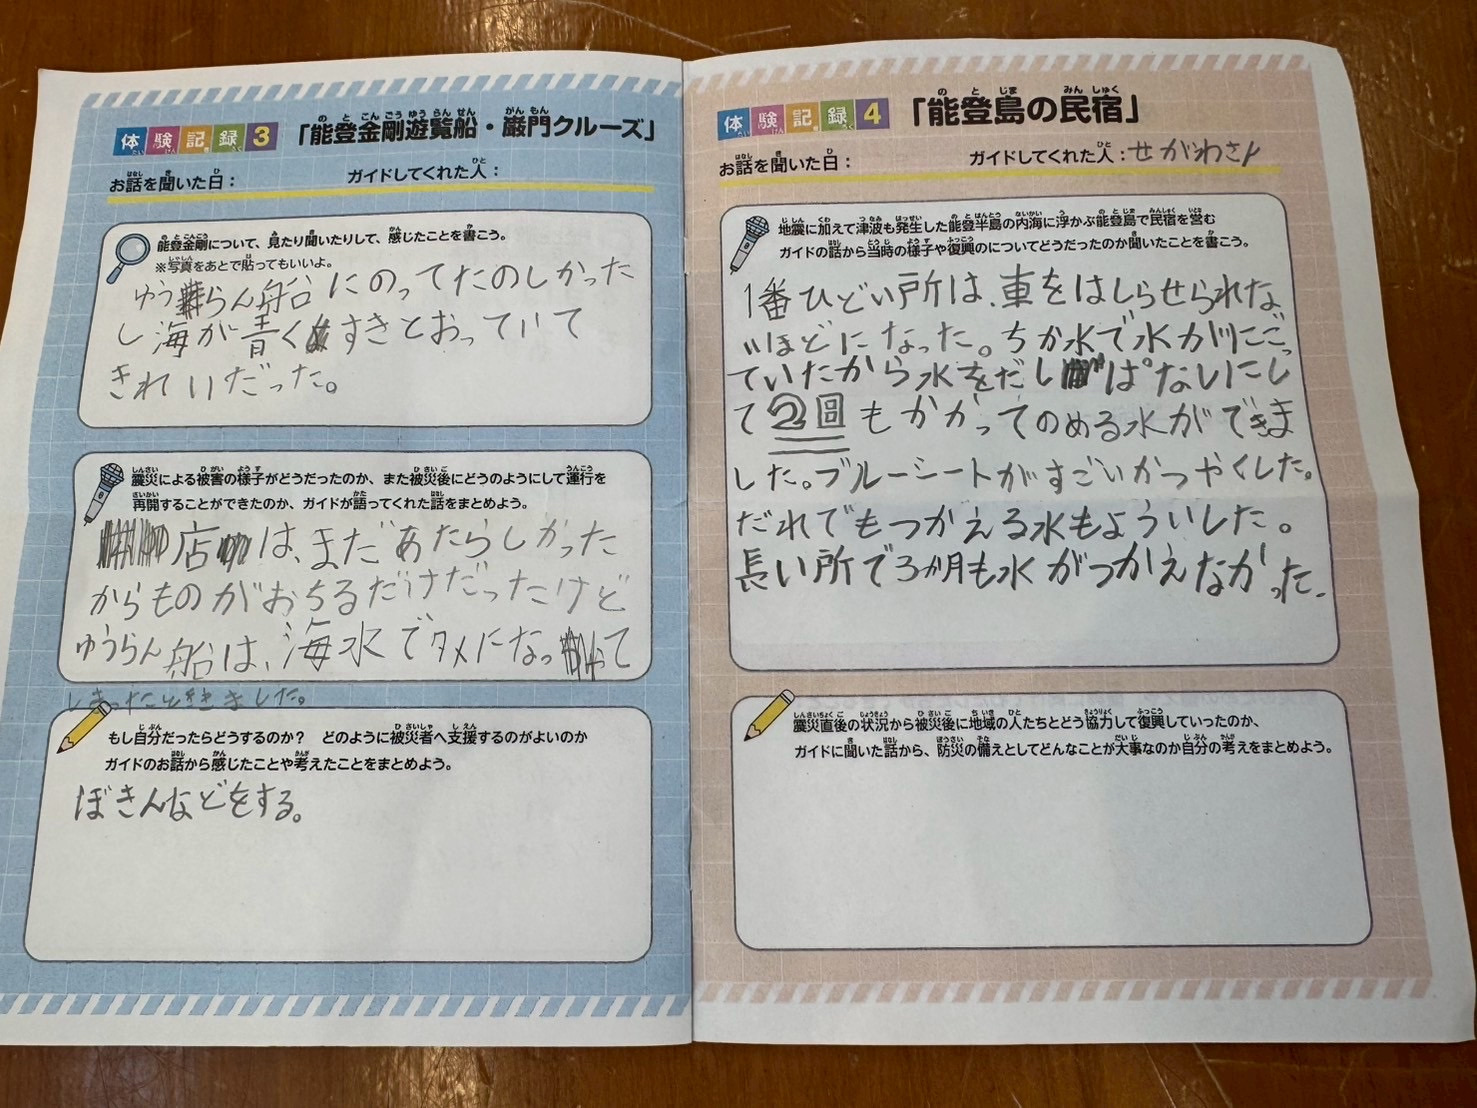 体験記録3
「能登金剛遊覧船・巌門クルーズ」
お話を聞いた日：
ガイドしてくれた人：
能登金剛について、見たり聞いたりして、感じたことを書こう。
※写真をあとで貼ってもいいよ。
ゆうらん船にのってたのしかった
し海が青くすきとおっていて
きれいだった。
震災による被害の様子がどうだったのか、また被災後にどのようにして運行を
再開することができたのか、ガイドが語ってくれた話をまとめよう。
店は、まだあたらしかった
からものがおちるだけだったけど
ゆうらん船は、海水でダメになって
しまったと
もし自分だったらどうするのか？　どのように被災者へ支援するのがよいのか
ガイドのお話から感じたことや考えたことをまとめよう。
ぼきんなどをする。
体験記録4
「能登島の民宿」
お話を聞いた日：
ガイドしてくれた人：せがわさん
地震に加えて津波も発生した能登半島の内海に浮かぶ能登島で民宿を営む
ガイドの話から当時の様子や復興のについてどうだったのか聞いたことを書こう。
1番ひどい所は、車をはしらせられな
いほどになった。ちか水で水がにごっ
ていたから水をだしぱなしにし
て2回もかかってのめる水ができま
した。ブルーシートがすごいかつやくした。
だれでもつかえる水もよういした。
長い所で3か月も水がつかえなかった.
震災直後の状況から被災後に地域の人たちとどう協力して復興していったのか、
ガイドに聞いた話から、防災の備えとしてどんなことが大事なのか自分の考えをまとめよう。